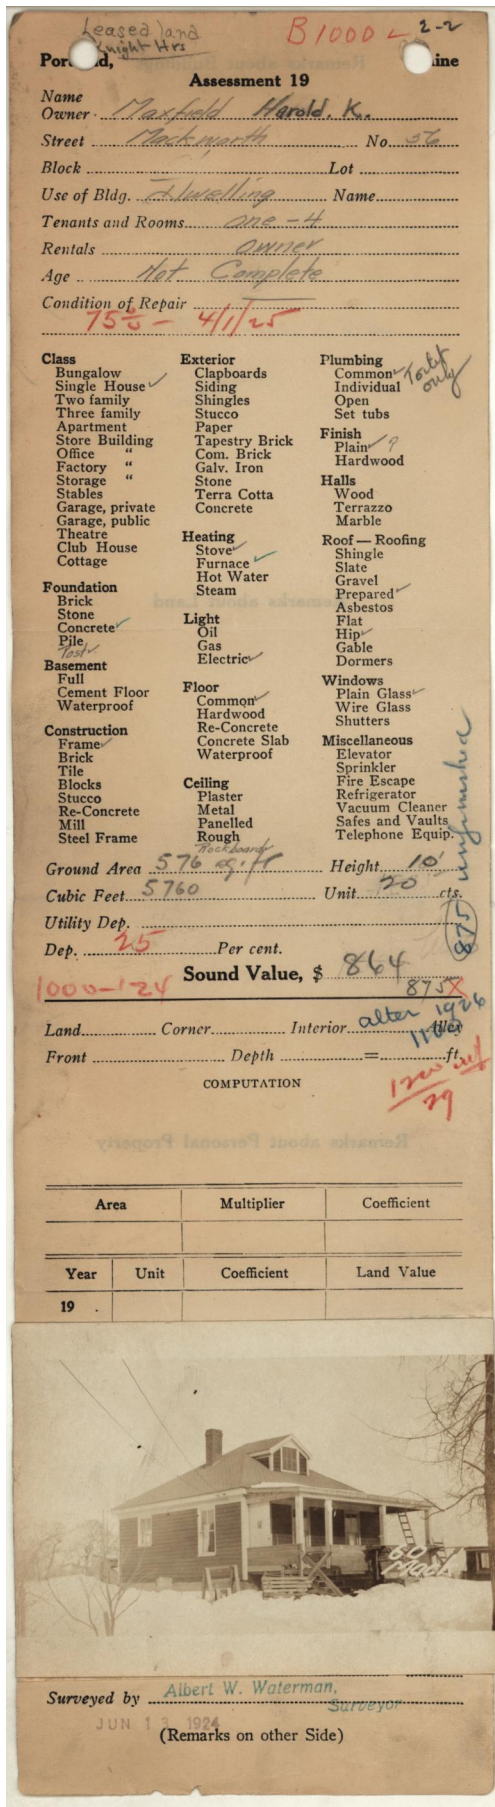 Leased land
Knight Hrs
B1000 L 2-2
Por nd, ine
Assessment 19
Name
Owner Maxfield Harold. K.
Street Mackworth No. 56
Block Lot
Use of Bldg. Dwelling Name
Tenants and Rooms one - 4
Rentals owner
Age Not Complete
Condition of Repair
75% - 4/1/25
Class
Bungalow
Single House ✓
Two family
Three family
Apartment
Store Building
Office "
Factory "
Storage "
Stables
Garage, private
Garage, public
Theatre
Club House
Cottage
Foundation
Brick
Stone
Concrete ✓
Pile
Post ✓
Basement
Full
Cement Floor
Waterproof
Construction
Frame ✓
Brick
Tile
Blocks
Stucco
Re-Concrete
Mill
Steel Frame
Exterior
Clapboards
Siding
Shingles
Stucco
Paper
Tapestry Brick
Com. Brick
Galv. Iron
Stone
Terra Cotta
Concrete
Heating
Stove ✓
Furnace ✓
Hot Water
Steam
Light
Oil
Gas
Electric ✓
Floor
Common ✓
Hardwood
Re-Concrete
Concrete Slab
Waterproof
Ceiling
Plaster
Metal
Panelled
Rough
Rockboard
Plumbing
Common ✓ Toilet only
Individual
Open
Set tubs
Finish
Plain ✓ ?
Hardwood
Halls
Wood
Terrazzo
Marble
Roof — Roofing
Shingle
Slate
Gravel
Prepared ✓
Asbestos
Flat
Hip ✓
Gable
Dormers
Windows
Plain Glass ✓
Wire Glass
Shutters
Miscellaneous
Elevator
Sprinkler
Fire Escape
Refrigerator
Vacuum Cleaner
Safes and Vaults
Telephone Equip.
875 unfinished
Ground Area 576 sq. ft Height 10'
Cubic Feet 5760 Unit 20 cts.
Utility Dep.
Dep. 25 Per cent.
Sound Value, $ 864
1000-124 875 X
Land Corner Interior Alley
alter 1926
Front Depth = ft.
COMPUTATION
29
Remarks about Personal Property
Area Multiplier Coefficient
Year Unit Coefficient Land Value
19 .
60
Mack
Surveyed by Albert W. Waterman,
Surveyor
JUN 13 1924
(Remarks on other Side)